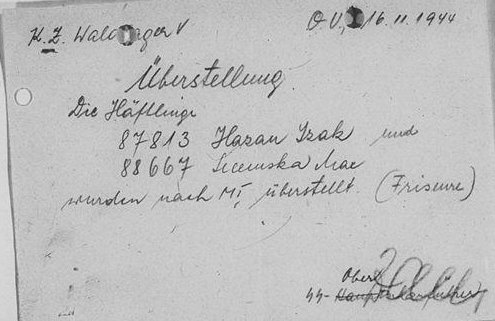 K. Z. Waldlager V
O. U., 16. 11. 1944
Überstellung.
Die Häftlinge
87813 Hazan Izak und
88667
wurden nach M I, überstellt. (Friseure)
Ober
SS-